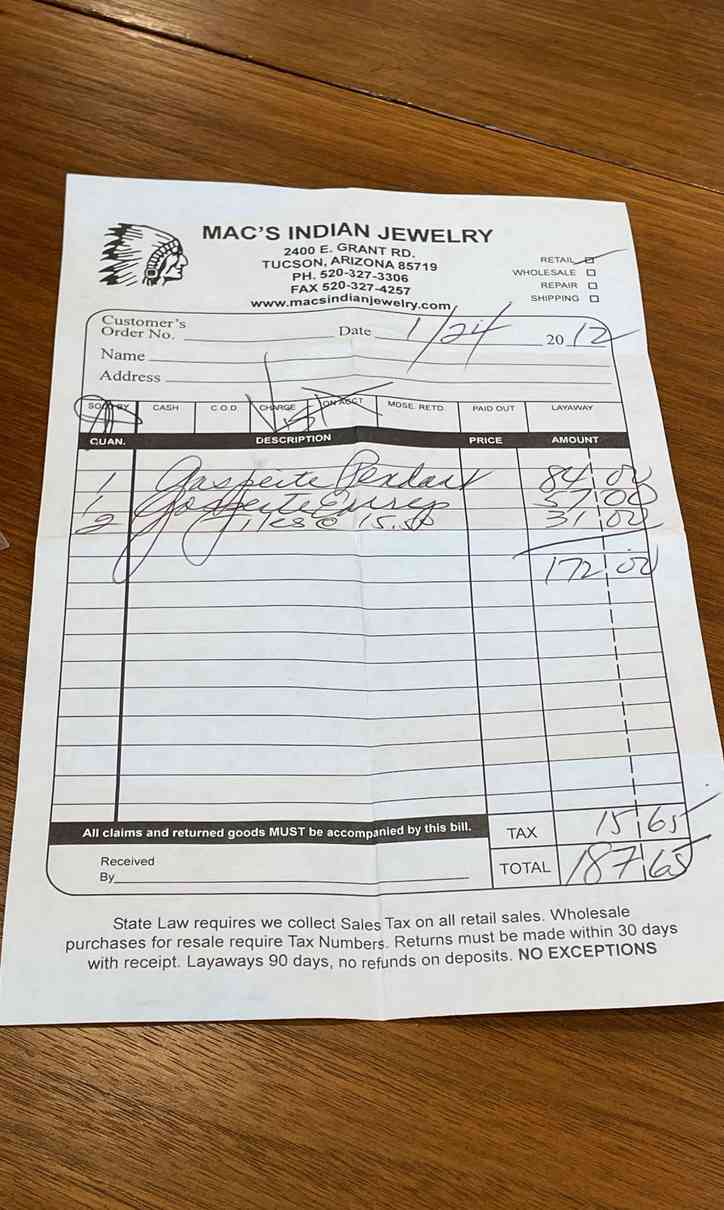 MAC'S INDIAN JEWELRY
2400 E. GRANT RD.
TUCSON, ARIZONA 85719
PH. 520-327-3306
FAX 520-327-4257
www.macsindianjewelry.com
RETAIL
WHOLESALE
REPAIR
SHIPPING
Customer's
Order No. Date 1/24 2012
Name
Address
SOLD BY CASH C O D CHARGE ON ACCT. MDSE. RETD. PAID OUT LAYAWAY
QUAN. DESCRIPTION PRICE AMOUNT
1 Gaspeite Pendant 84 00
1 Gaspeite 57 00
2 Tiles @ 15.50 31 00
172 00
All claims and returned goods MUST be accompanied by this bill. TAX 15 65
Received
By TOTAL 187 65
State Law requires we collect Sales Tax on all retail sales. Wholesale
purchases for resale require Tax Numbers. Returns must be made within 30 days
with receipt. Layaways 90 days, no refunds on deposits. NO EXCEPTIONS